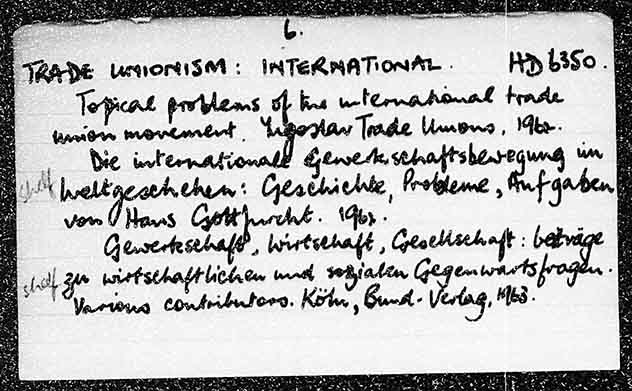 6.
TRADE UNIONISM: INTERNATIONAL. HD 6350.
Topical problems of the international trade
union movement. Yugoslav Trade Unions, 1962.
Die internationale Gewerkschaftsbewegung im
shelf Weltgeschehen: Geschichte, Probleme, Aufgaben
von Hans Gottfurcht. 1962.
Gewerkschaft, Wirtschaft, Gesellschaft: beträge
shelf zu wirtschaftlichen und sozialen Gegenwartsfragen.
Various contributors. Köln, Bund-Verlag, 1963.